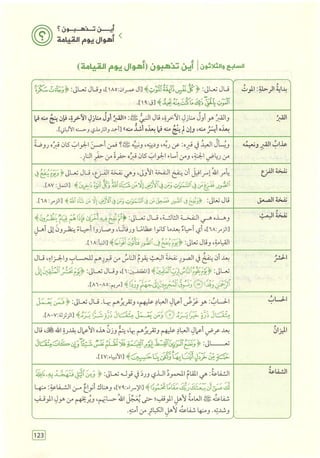 أيــن تــذهبــون ؟
أهوال يوم القيامة
؟
السابع والثلاثون | أين تذهبون (أهوال يوم القيامة)
بداية الرحلة: الموتُ
قال تعالى: ﴿ كُلُّ نَفْسٍ ذَائِقَةُ الْمَوْتِ ﴾ [آل عمران:١٨٥]، وقال تعالى: ﴿ وَجَاءَتْ سَكْرَةُ
الْمَوْتِ بِالْحَقِّ ذَلِكَ مَا كُنْتَ مِنْهُ تَحِيدُ ﴾ [ق:١٩].
القبرُ
والقبرُ هو أول منازل الآخرة، قال النبي ﷺ: «القبرُ أول منازل الآخرة، فإن ينجُ منه فما
بعده أيسر منه، وإن لم ينج منه فما بعده أشد منه»
عذابُ القبر ونعيمُه
ويُسأل العبدُ في قبره: عن ربِّه، ودينه، ونبيه ﷺ؛ فمن أحسن الجواب كان قبره روضة
من رياض الجنة، ومن أساء الجواب كان قبره حفرة من حفر النار.
نفخة الفزع
يأمر الله إسرافيل أن ينفخ النفخة الأولى، وهي نفخة الفزع، قال تعالى: ﴿ وَيَوْمَ يُنْفَخُ فِي
الصُّورِ فَفَزِعَ مَنْ فِي السَّمَاوَاتِ وَمَنْ فِي الْأَرْضِ إِلَّا مَنْ شَاءَ اللَّهُ وَكُلٌّ أَتَوْهُ دَاخِرِينَ ﴾ [النمل:٨٧].
نفخة الصعق
قال تعالى: ﴿ وَنُفِخَ فِي الصُّورِ فَصَعِقَ مَنْ فِي السَّمَاوَاتِ وَمَنْ فِي الْأَرْضِ إِلَّا مَنْ شَاءَ اللَّهُ ﴾ [الزمر:٦٨].
نفخة البعث
وهذه هي النفخة الثالثة، قال تعالى: ﴿ ثُمَّ نُفِخَ فِيهِ أُخْرَى فَإِذَا هُمْ قِيَامٌ يَنْظُرُونَ ﴾
[الزمر:٦٨]، أي: أحياءً بعدما كانوا عظامًا ورفاتًا، وصاروا أحياءً ينظرون إلى أهوال
القيامة، وقال تعالى: ﴿ يَوْمَ يُنْفَخُ فِي الصُّورِ فَتَأْتُونَ أَفْوَاجًا ﴾ [النبأ:١٨].
الحشرُ
بعد أن ينفخ في الصور نفخة البعث يقوم الناس من قبورهم للحساب والجزاء، قال
تعالى: ﴿ يَوْمَ يَقُومُ النَّاسُ لِرَبِّ الْعَالَمِينَ ﴾ [المطففين:٦]، وقال تعالى: ﴿ يَوْمَ نَحْشُرُ الْمُتَّقِينَ إِلَى
الرَّحْمَنِ وَفْدًا وَنَسُوقُ الْمُجْرِمِينَ إِلَى جَهَنَّمَ وِرْدًا ﴾ [مريم:٨٥-٨٦].
الحسابُ
الحسابُ: هو عرض أعمال العباد عليهم، وتقريرهم بها، قال تعالى: ﴿ فَمَنْ يَعْمَلْ
مِثْقَالَ ذَرَّةٍ خَيْرًا يَرَهُ وَمَنْ يَعْمَلْ مِثْقَالَ ذَرَّةٍ شَرًّا يَرَهُ ﴾ [الزلزلة:٧-٨].
الميزانُ
بعد عرض أعمال العباد عليهم وتقريرهم بها، يتم وزن هذه الأعمال بقدرة الله، قال
تعالى: ﴿ وَنَضَعُ الْمَوَازِينَ الْقِسْطَ لِيَوْمِ الْقِيَامَةِ فَلَا تُظْلَمُ نَفْسٌ شَيْئًا وَإِنْ كَانَ مِثْقَالَ
حَبَّةٍ مِنْ خَرْدَلٍ أَتَيْنَا بِهَا وَكَفَى بِنَا حَاسِبِينَ ﴾ [الأنبياء:٤٧].
الشفاعةُ
الشفاعةُ: هي المقامُ المحمودُ الذي ورد في قوله تعالى: ﴿ وَمِنَ اللَّيْلِ فَتَهَجَّدْ بِهِ نَافِلَةً
لَكَ عَسَى أَنْ يَبْعَثَكَ رَبُّكَ مَقَامًا مَحْمُودًا ﴾ [الإسراء:٧٩]، وهناك أنواع من الشفاعة: منها
شفاعته ﷺ العامة لأهل الموقف؛ حتى يُعجِّل الله حسابهم، ويُريحهم من هول الموقف
وشدته. ومنها شفاعته لأهل الكبائر من أمته.
123